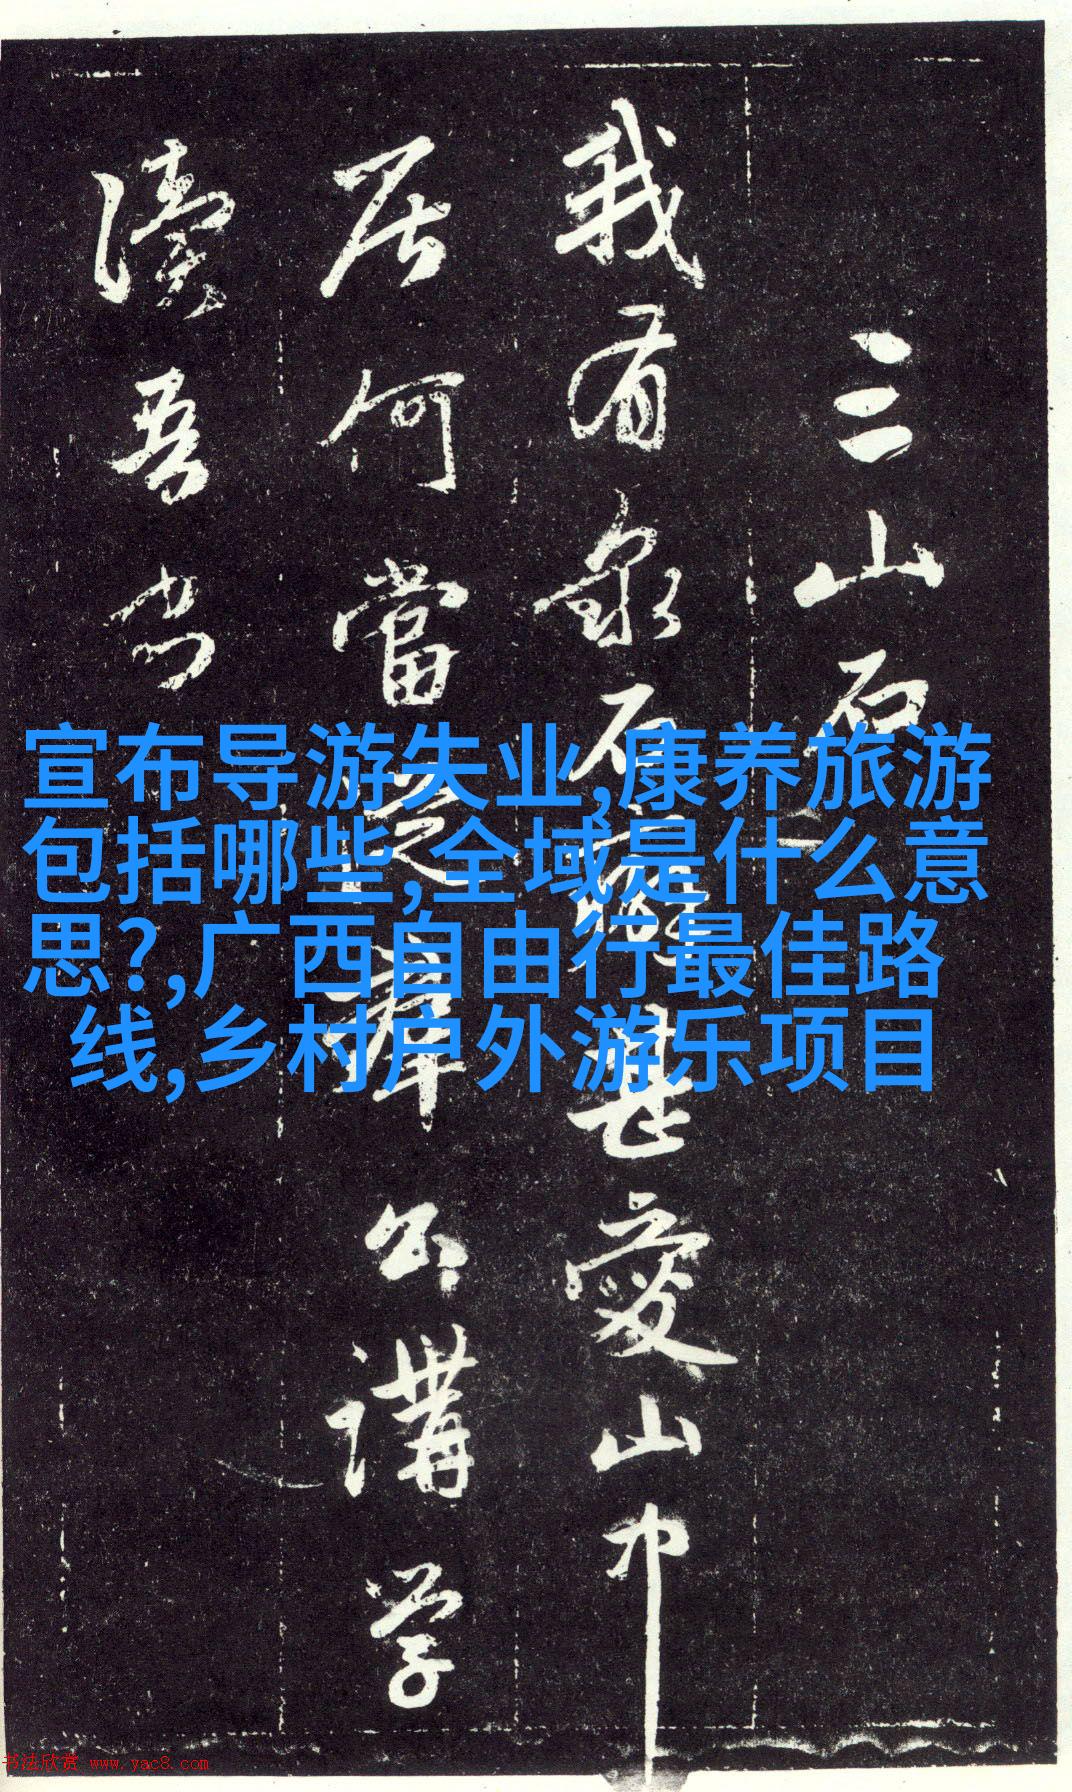 三山石
我有泉石癖甚愛山中
居何當從群公講學
讀吾书
宣布导游失业,康养旅游
包括哪些,全域是什么意
思?,广西自由行最佳路
线,乡村户外游乐项目
书法欣赏 www.yac8.com